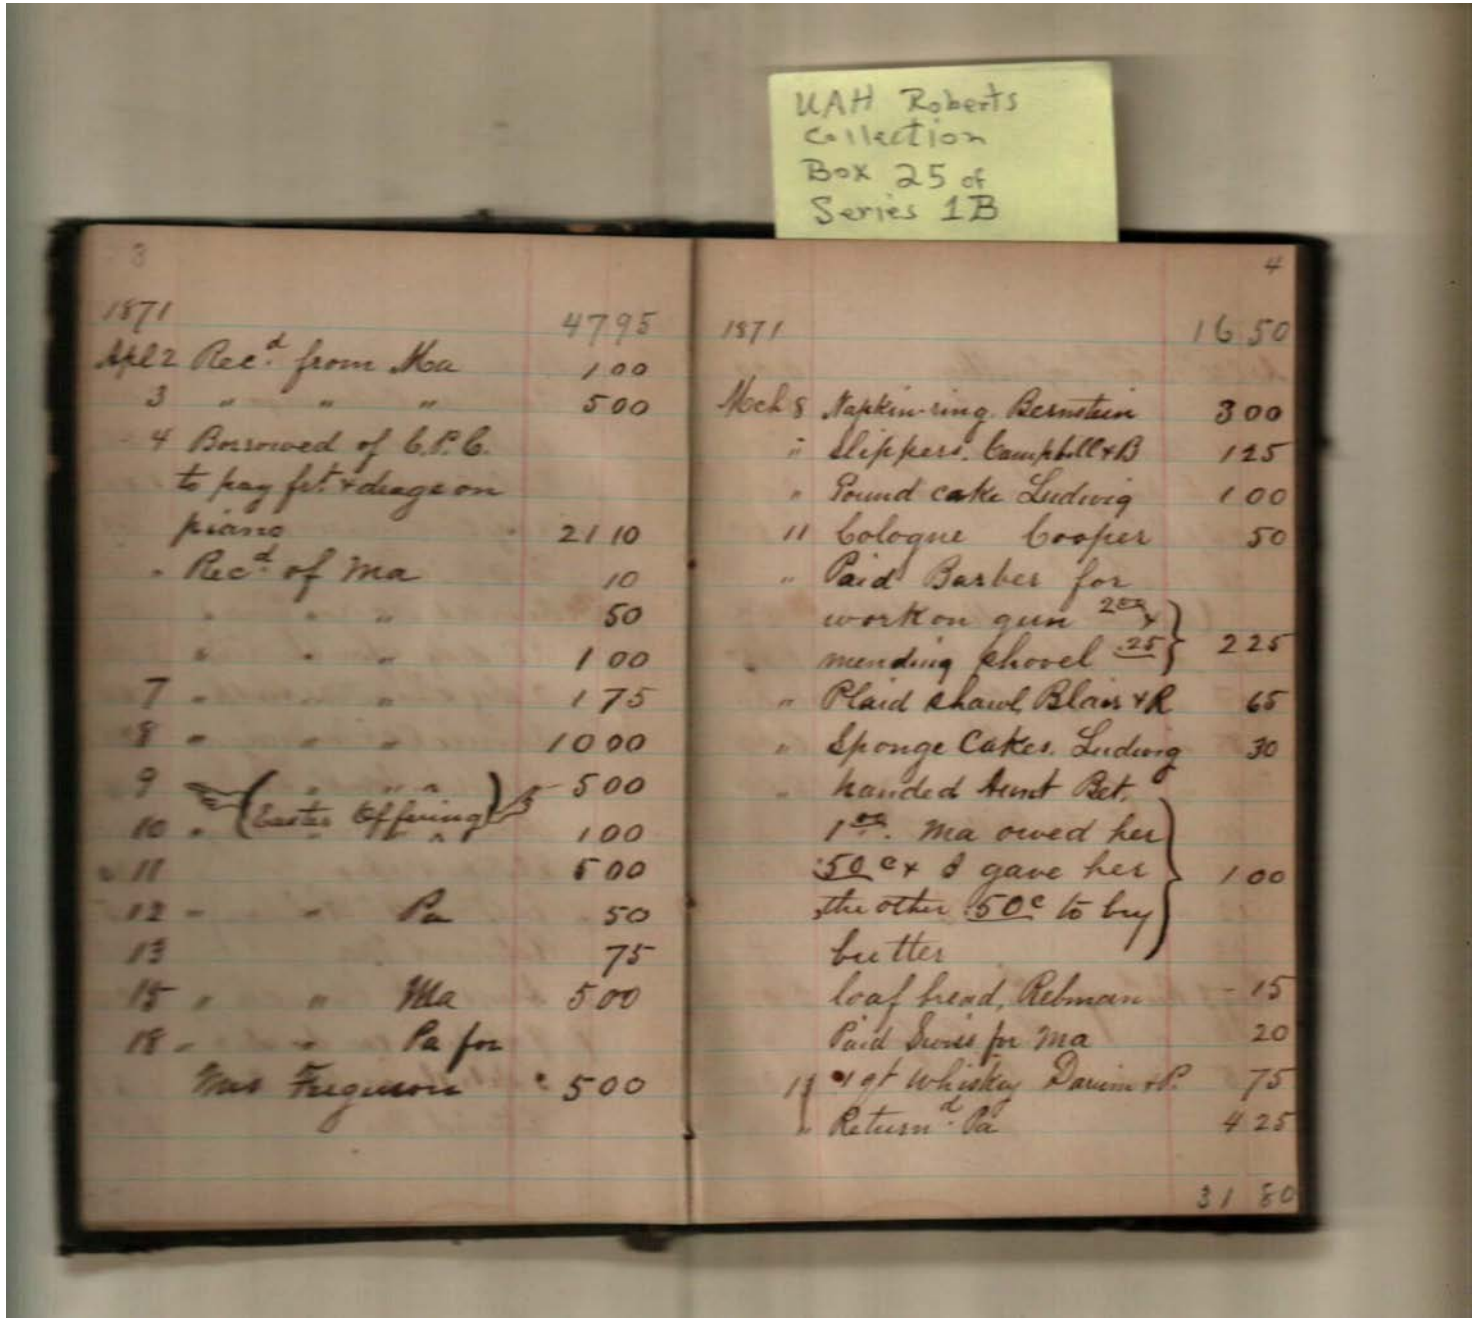 UAH Roberts
Collection
Box 25 of
Series 1B
3
1871 4795
Apl 2 Rec.d from Ma 1 00
3 " " " 5 00
4 Borrowed of C.P.C.
to pay frt. & drage on
piano 21 10
" Rec.d of Ma 10
" " " 50
" " " 1 00
7 " " 1 75
8 " " " 10 00
9 " " " 5 00
(Easter Offering)
10 " " " 1 00
" 11 5 00
12 " " Pa 50
13 75
15 " " Ma 5 00
18 " " Pa for
Mrs Ferguson 5 00
4
1871 16 50
Mch 8 Napkin-ring. Bernstein 3 00
" Slippers. Campbell & B 1 25
" Pound cake Ludwig 1 00
11 Cologne Cooper 50
" Paid Barber for
work on gun 2 00 &
mending shovel .25 } 2 25
" Plaid shawl, Blair & R 65
" Sponge Cakes. Ludwig 30
" handed Aunt Bet.
1 00. Ma owed her
.50 c & I gave her 1 00
the other .50 c to buy
butter
loaf bread, Rebman 15
Paid for Ma 20
11 1 qt whiskey & P. 75
" Return.d Pa 4 25
31 80